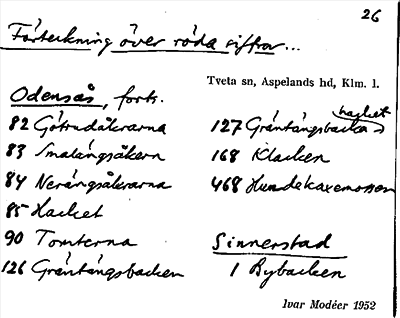 26
Förteckning över röda siffror...
Tveta sn, Aspelands hd, Klm. l.
Odensås, forts.
82 Götrudåkrarna
83 Smalängsåkern
84 Nerängsåkrarna
85 Hacket
90 Tomterna
126 Gräntängsbacken
127 Gräntängsbacka hacket
168 Klacken
468 Hundekaxemossen
Sinnerstad
1 Bybacken
Ivar Modéer 1952